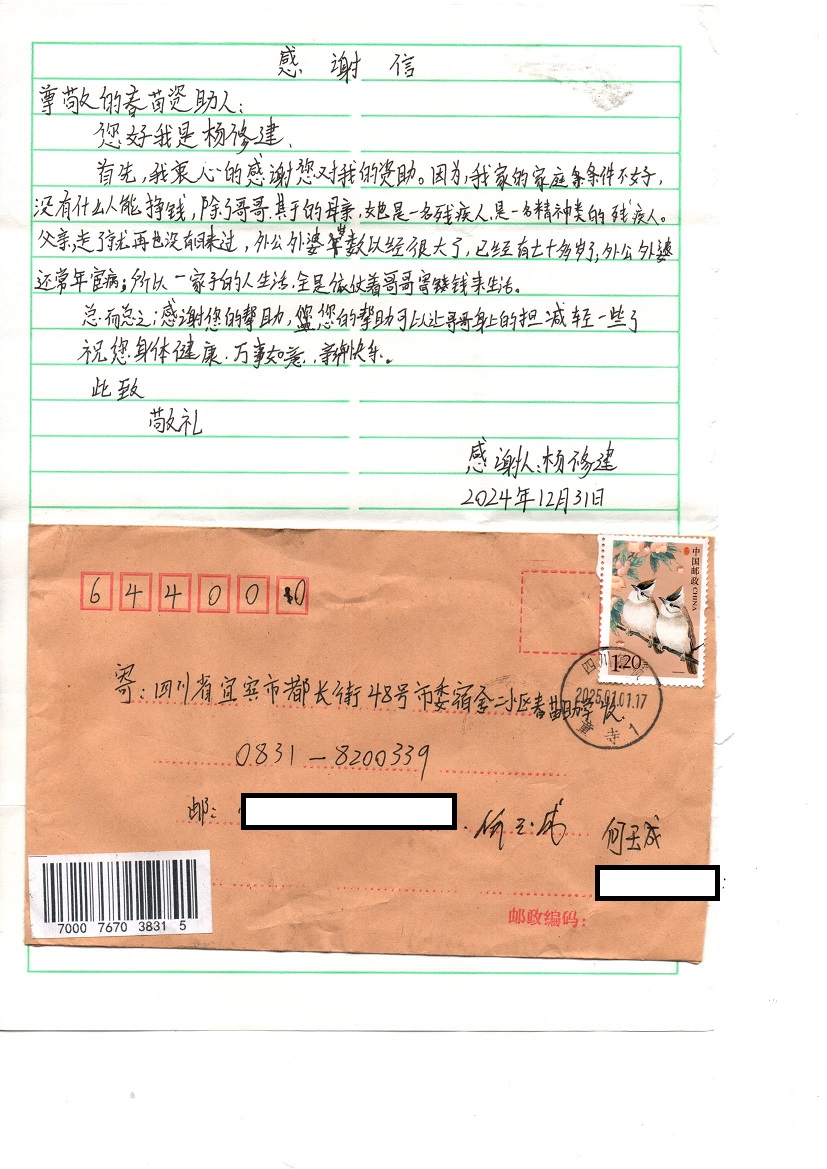 感谢信
尊敬的春苗资助人：
您好我是杨修建．
首先，我衷心的感谢您对我的资助。因为，我家的家庭条条件不好，
没有什么人能挣钱，除了哥哥．其于的母亲，她也是一名残疾人，是一名精神类的残疾人。
父亲，走了就再也没有回来过，外公外婆年数以经很大了，已经有七十多岁了，外公外婆
还常年官病；所以一家子的人生活．全是依仗着哥哥寄钱来生活。
总而总之；感谢您的帮助，您的帮助可以让哥哥身上的担减轻一些了
祝您身体健康．万事如意，新年快乐。
此致
敬礼
感谢人：杨修建
2024年12月31日
644000
中国邮政 CHINA
1.20元
四川
2025.01.01.17
1
寄：四川省宜宾市都长街48号市委宿舍二小区春苗助学
0831－8200339
邮：
何玉成
7000 7670 3831 5
邮政编码：